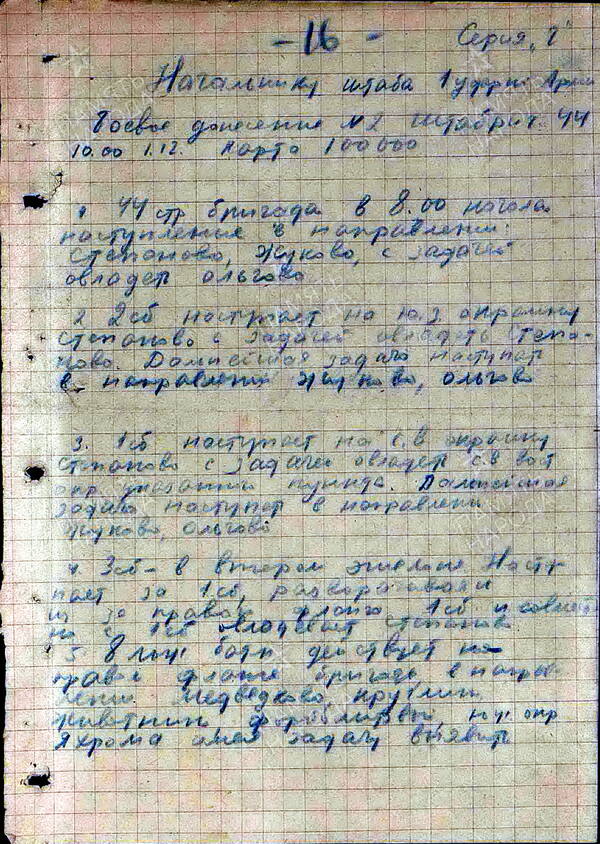 - 16 -
Серия "Г"
Начальнику штаба 1 ударн. Армии
Боевое донесение №2 штабриг. 44
10.00 1.12. Карта 100000
1 44 стр бригада в 8.00 начала
наступление в направлении:
Степаново, Жуково, с задачей
овладеть Ольгово
2 2сб наступает на ю.з окраину
Степаново с задачей овладеть Степа-
ново. Дальнейшая задача наступать
в направлении Жуково, Ольгово
3. 1сб наступает на с.в окраину
Степаново с задачей овладеть с.в
окр указанный пункта. Дальнейшая
задача наступать в направлении
Жуково, Ольгово
4. 3сб - в втором эшелоне. Насту-
пает за 1сб, разворачиваясь
из за правого фланга 1сб и
на с 1сб овладевает Степаново
5 8 лыж батн действует на
правом фланге бригады, в направ-
лении Медведково,
Яхрома имея задачу выявить